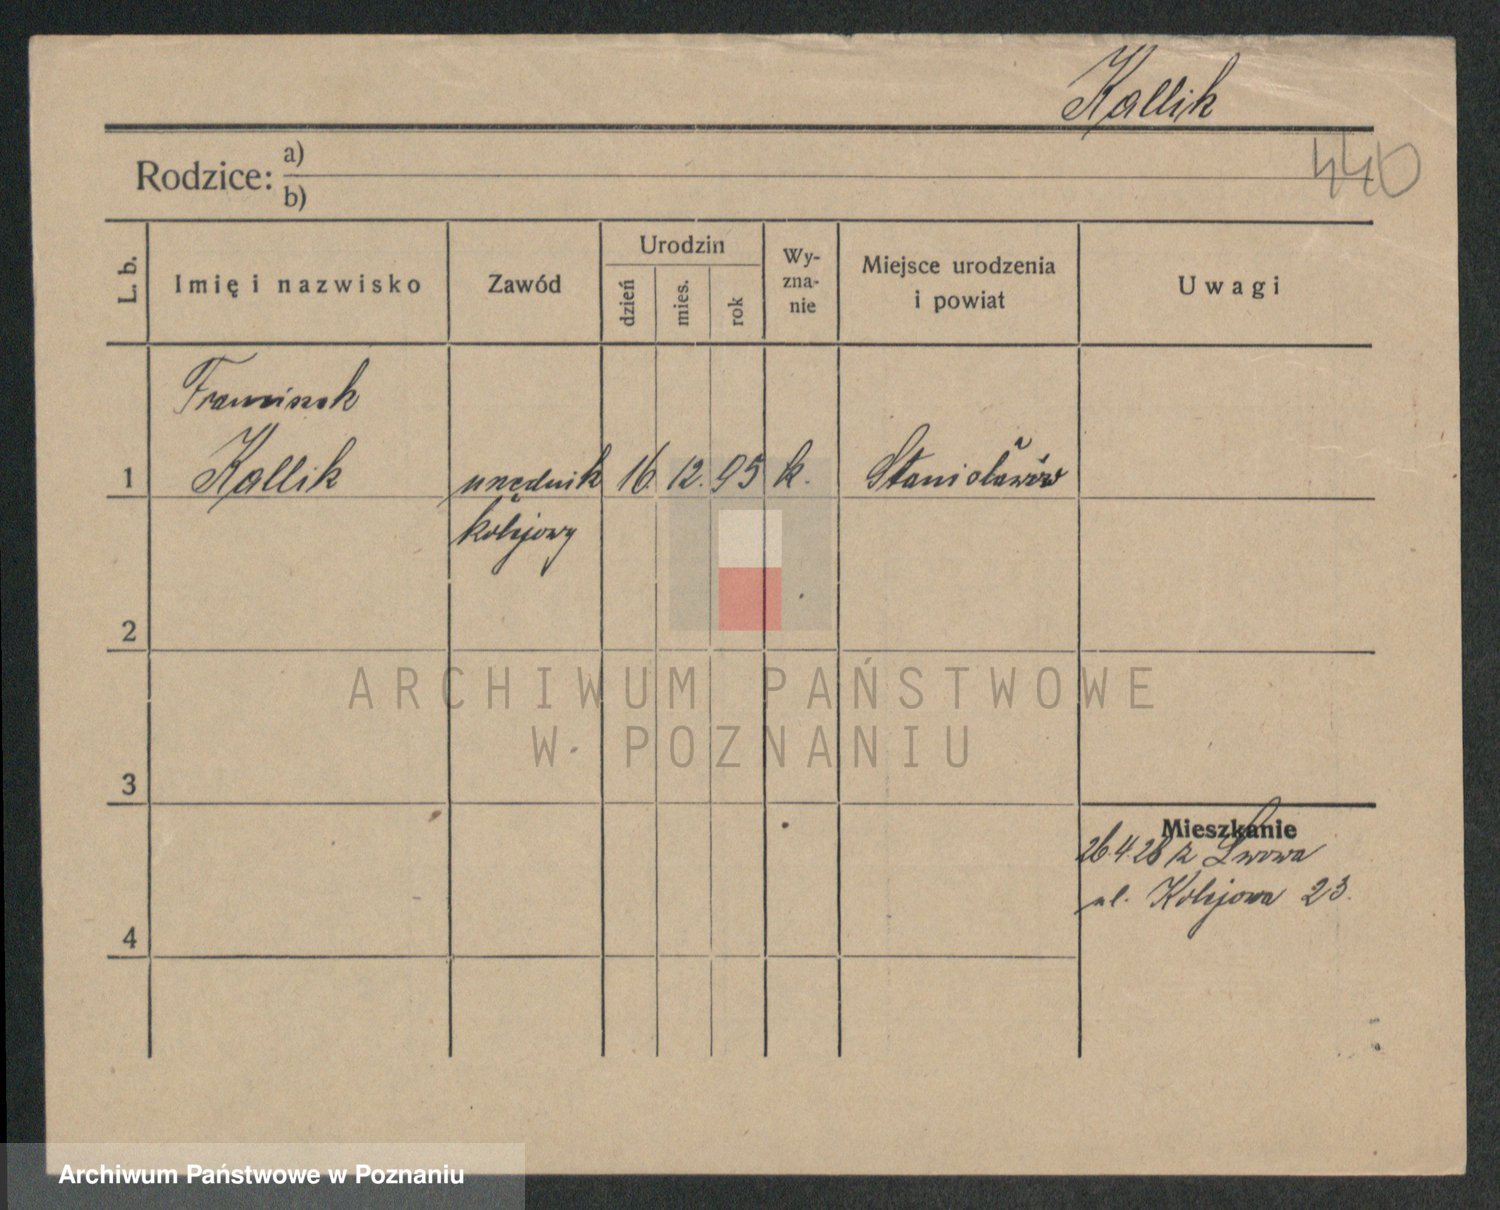 Kallik
440
Rodzice: a)
b)
L. b.
Imię i nazwisko
Zawód
Urodzin
dzień
mies.
rok
Wy-
zna-
nie
Miejsce urodzenia
i powiat
Uwagi
Franciszek
1 Kallik urzędnik 16. 12. 95 k. Stanisławów
kolejowy
2
ARCHIWUM PAŃSTWOWE
W POZNANIU
3
Mieszkanie
26.4.28 z Lwowa
ul. Kolejowa 23.
4
Archiwum Państwowe w Poznaniu